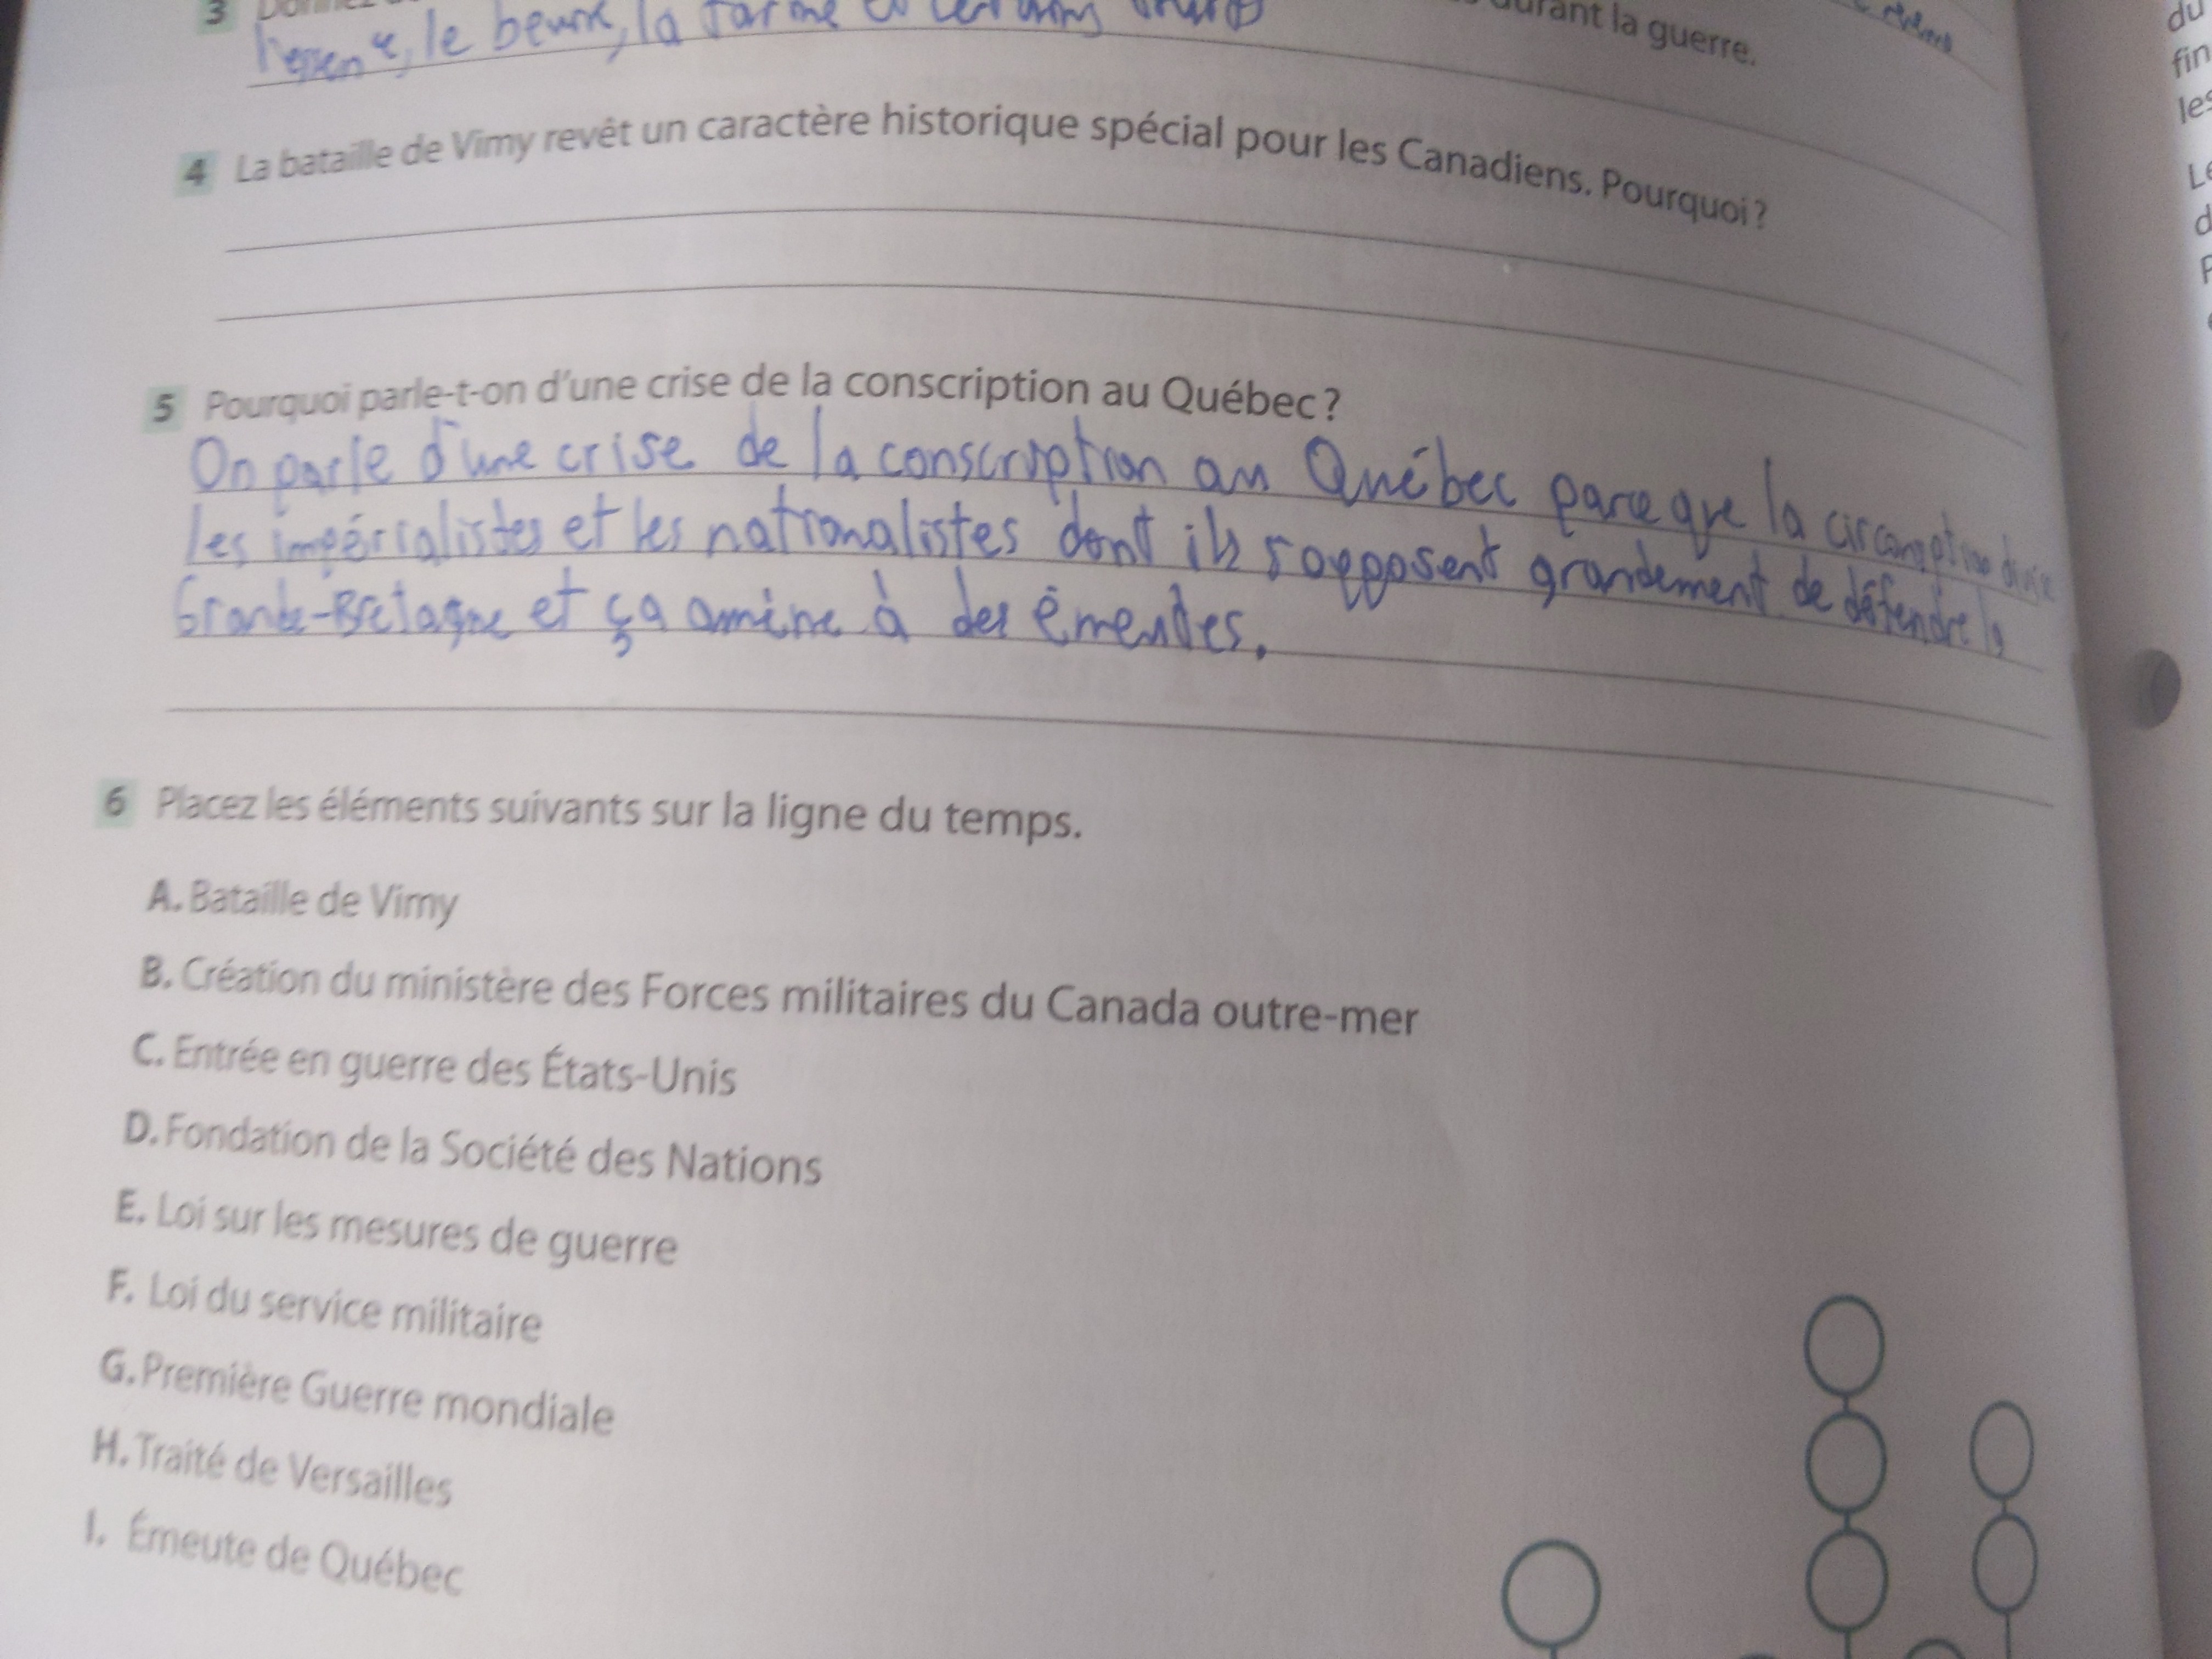 3
l'essence, le beurre, la farine et certains
durant la guerre.
4 La bataille de Vimy revêt un caractère historique spécial pour les Canadiens. Pourquoi?
5 Pourquoi parle-t-on d'une crise de la conscription au Québec?
On parle d'une crise de la conscription au Québec parce que la
les impérialistes et les nationalistes dont ils s'opposent grandement de défendre la
Grande-Bretagne et ça amène à des émeutes.
6 Placez les éléments suivants sur la ligne du temps.
A. Bataille de Vimy
B. Création du ministère des Forces militaires du Canada outre-mer
C. Entrée en guerre des États-Unis
D. Fondation de la Société des Nations
E. Loi sur les mesures de guerre
F. Loi du service militaire
G. Première Guerre mondiale
H. Traité de Versailles
I. Émeute de Québec
du
fin
les